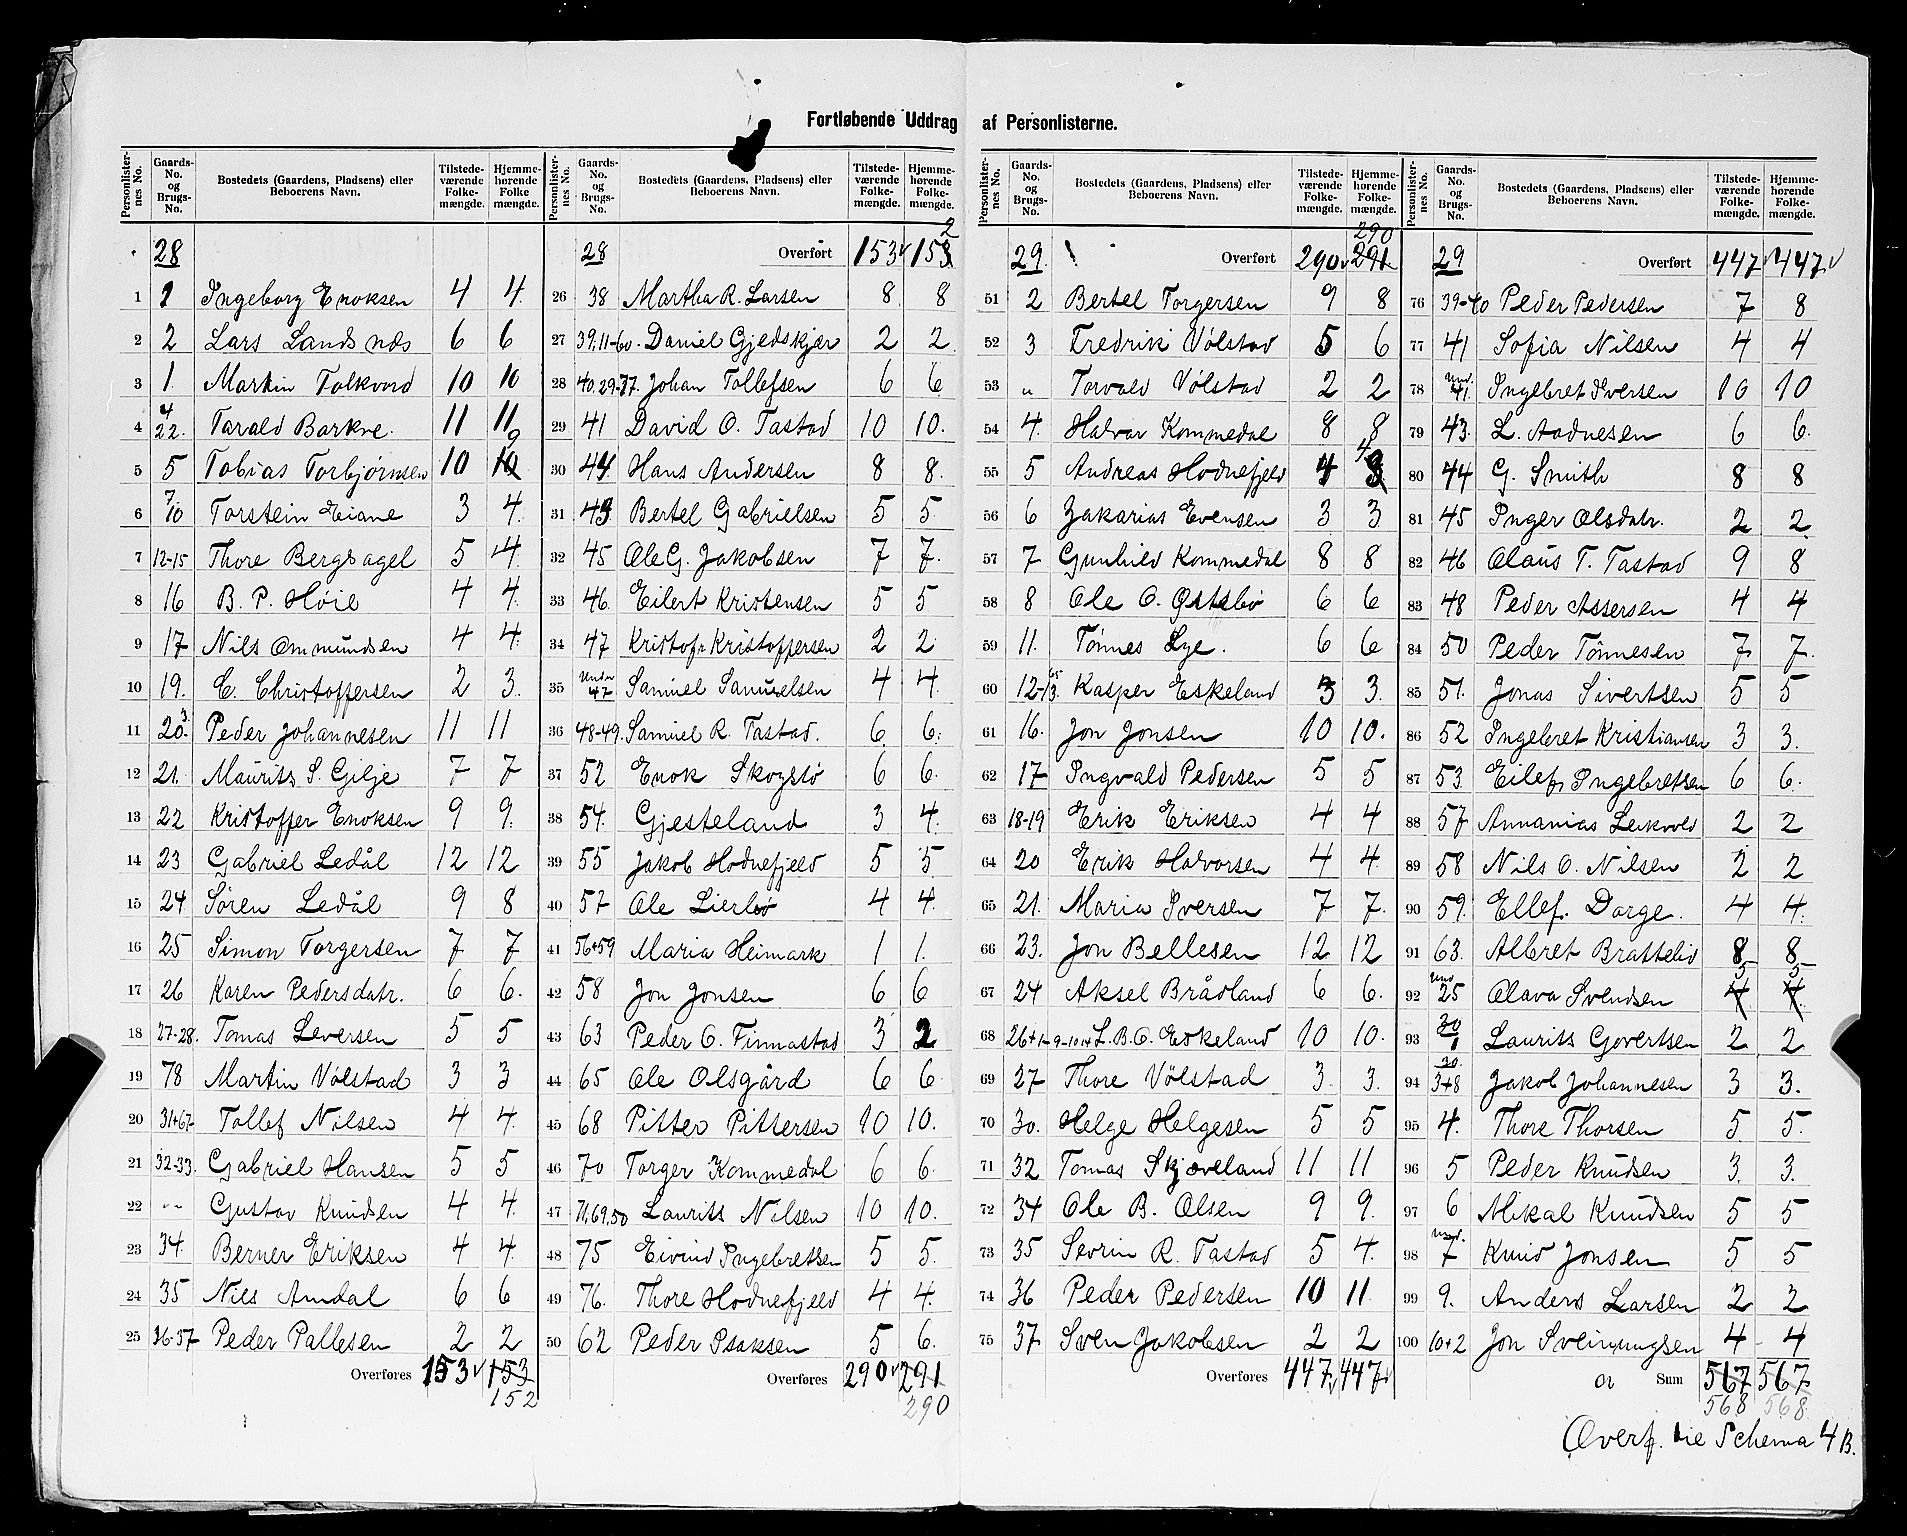 Fortløbende Uddrag af Personlisterne.
Personlisternes No. | Gaards-No. og Brugs-No. | Bostedets (Gaardens, Pladsens) eller Beboerens Navn. | Tilstedeværende Folkemængde. | Hjemmehørende Folkemængde.
28
1 | 1 | Ingeborg Enoksen | 4 | 4
2 | 2 | Lars Landsnæs | 6 | 6
3 | 1 | Martin Tolkvord | 10 | 10
4 | 4 22. | Tarald Barkve. | 11 | 11
5 | 5 | Tobias Torbjørnsen | 10 | 10 9
6 | 7/10 | Torstein Eiane | 3 | 4.
7 | 12-15 | Thore Bergsagel | 5 | 4.
8 | 16 | B. P. Høie | 4 | 4.
9 | 17 | Nils Ommundsen | 4 | 4.
10 | 19. | C. Christoffersen | 2 | 3.
11 | 20 3. | Peder Johannesen | 11 | 11
12 | 21. | Maurits S. Gilje | 7 | 7
13 | 22 | Kristoffer Enoksen | 9 | 9.
14 | 23 | Gabriel Ledål | 12 | 12
15 | 24 | Søren Ledål | 9 | 8
16 | 25 | Simon Torgersen | 7 | 7
17 | 26 | Karen Pedersdatr. | 6 | 6.
18 | 27-28. | Tomas Leversen | 5 | 5
19 | 78 | Martin Vølstad | 3 | 3
20 | 31+67 | Tollef Nilsen | 4 | 4.
21 | 32-33. | Gabriel Hansen | 5 | 5
22 | -- | Gustav Knudsen | 4 | 4.
23 | 34. | Berner Eriksen | 4 | 4.
24 | 35 | Nils Amdal | 6 | 6
25 | 36-37 | Peder Pallesen | 2 | 2
Overføres | 153 | 153
152
Personlisternes No. | Gaards-No. og Brugs-No. | Bostedets (Gaardens, Pladsens) eller Beboerens Navn. | Tilstedeværende Folkemængde. | Hjemmehørende Folkemængde.
28 | Overført | 153 | 153 2
26 | 38 | Martha R. Larsen | 8 | 8
27 | 39,11-60. | Daniel Gjedskjær | 2 | 2
28 | 40,29-77. | Johan Tollefsen | 6 | 6
29 | 41 | David O. Tastad | 10 | 10.
30 | 44. | Hans Andersen | 8 | 8.
31 | 43 | Bertel Gabrielsen | 5 | 5
32 | 45 | Ole G. Jakobsen | 7 | 7.
33 | 46. | Eilert Kristensen | 5 | 5
34 | 47 | Kristofr Kristoffersen | 2 | 2
35 | Under 47 | Samuel Samuelsen | 4 | 4.
36 | 48-49. | Samuel R. Tastad. | 6 | 6.
37 | 52 | Enok Skogsbø | 6 | 6.
38 | 54. | Gjesteland | 3 | 4.
39 | 55 | Jakob Hodnefjeld | 5 | 5
40 | 57 | Ole Lierbø | 4 | 4.
41 | 56+59 | Maria Heimark | 1 | 1.
42 | 58 | Jon Jonsen | 6 | 6
43 | 63 | Peder O. Finnastad | 3 | 2
44 | 65 | Ole Olsgård | 6 | 6.
45 | 68 | Pitter Pittersen | 10 | 10.
46 | 70 | Torger Kommedal | 6 | 6.
47 | 71,69,50 | Laurits Nilsen | 10 | 10.
48 | 75 | Eivind Ingebretsen | 5 | 5.
49 | 76. | Thore Hodnefjeld | 4 | 4.
50 | 62 | Peder Isaksen | 5 | 6.
Overføres | 290 | 291
290
Personlisternes No. | Gaards-No. og Brugs-No. | Bostedets (Gaardens, Pladsens) eller Beboerens Navn. | Tilstedeværende Folkemængde. | Hjemmehørende Folkemængde.
29. | Overført | 290 | 291 290
51 | 2 | Bertel Torgersen | 9 | 8
52 | 3 | Fredrik Vølstad | 5 | 6
53 | " | Torvald Vølstad | 2 | 2
54 | 4. | Halvar Kommedal | 8 | 8
55 | 5 | Andreas Hodnefjeld | 4 | 8 4
56 | 6 | Zakarias Evensen | 3 | 3
57 | 7 | Gunhild Kommedal | 8 | 8
58 | 8 | Ole O. Østebø | 6 | 6
59 | 11. | Tønnes Lye. | 6 | 6
60 | 12-13. | Kasper Eskeland | 3 | 3.
61 | 16. | Jon Jonsen | 10 | 10.
62 | 17 | Ingvald Pedersen | 5 | 5
63 | 18-19 | Erik Eriksen | 4 | 4
64 | 20 | Erik Halvorsen | 4 | 4.
65 | 21. | Maria Iversen | 7 | 7.
66 | 23. | Jon Bellesen | 12 | 12
67 | 24 | Aksel Brådland | 6 | 6.
68 | 26+1-9-10+ | L. B. O. Eskeland | 10 | 10.
69 | 27 | Thore Vølstad | 3. | 3.
70 | 30. | Helge Helgesen | 5 | 5
71 | 32 | Tomas Skjæveland | 11 | 11
72 | 34 | Ole B. Olsen | 9 | 9.
73 | 35 | Sevrin R. Tastad | 5 | 4.
74 | 36 | Peder Pedersen | 10 | 11
75 | 37 | Sven Jakobsen | 2 | 2
Overføres | 447 | 447
Personlisternes No. | Gaards-No. og Brugs-No. | Bostedets (Gaardens, Pladsens) eller Beboerens Navn. | Tilstedeværende Folkemængde. | Hjemmehørende Folkemængde.
29 | Overført | 447 | 447
76 | 39-40 | Peder Pedersen | 7 | 8
77 | 41 | Sofia Nilsen | 4 | 4
78 | Und. 41. | Ingebret Iversen | 10 | 10
79 | 43. | L. Aadnesen | 6 | 6.
80 | 44 | G. Smith | 8 | 8
81 | 45 | Inger Olsdatr. | 2 | 2.
82 | 46 | Olaus T. Tastad | 9 | 8
83 | 48 | Peder Assersen | 4 | 4
84 | 50 | Peder Tønnesen | 7 | 7.
85 | 51. | Jonas Sivertsen | 5 | 5
86 | 52 | Ingebret Kristiansen | 3 | 3.
87 | 53. | Eilef Ingebretsen | 6 | 6.
88 | 57 | Annanias Leikvold | 2 | 2
89 | 58 | Nils O. Nilsen | 2 | 2
90 | 59. | Ellef. Dorge. | 4 | 4.
91 | 63. | Albret Brattelid | 8 | 8
92 | Und 25 | Olava Svendsen | 4 5 | 4 5
93 | 30 1 | Laurits Govertsen | 2 | 2
94 | 30. 3+8 | Jakob Johannesen | 3 | 3.
95 | 4. | Thore Thorsen | 5 | 5.
96 | 5 | Peder Knudsen | 3. | 3.
97 | 6 | Mikal Knudsen | 5 | 5
98 | Und. 7 | Knud Jonsen | 5 | 5
99 | 9. | Anders Larsen | 2 | 2
100 | 10+2 | Jon Sveinungsen | 4 | 4
Sum | 567 | 567
568 | 568
Overf. til Schema 4 B.